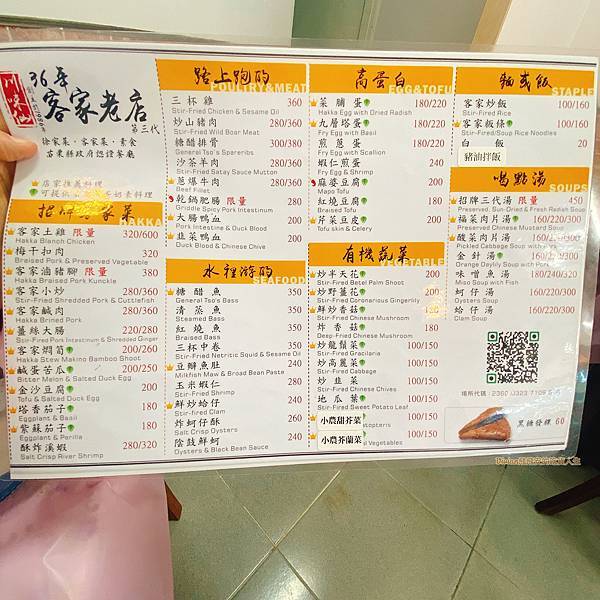 36年
客家老店
第三代
徐家菜·客家菜·素食
苗栗縣政府認證餐廳
店家推薦料理
招牌客家菜
HAKKA
客家土雞 限量 320/600
Hakka Blanch Chicken
梅干扣肉 320
Braised Pork & Preserved Vegetable
客家滷豬腳 限量 380
Hakka Braised Pork Kunckle
客家小炒 280/360
Stir-Fried Shredded Pork & Cuttlefish
客家鹹肉 280/360
Hakka Brined Pork
薑絲大腸 220/280
Stir-Fried Pork Intestinum & Shredded Ginger
客家燜筍 200/260
Hakka Stew Making Bamboo Shoot
鹹蛋苦瓜 200/250
Bitter Melon & Salted Duck Egg
金沙豆腐 200
Tofu & Salted Duck Egg
塔香茄子 180
Eggplant & Basil
紫蘇茄子 180
Eggplant & Perilla
酥炸溪蝦 280/320
Salt Crisp River Shrimp
路上跑的
POULTRY&MEAT
三杯雞 360
Stir-Fried Chicken & Sesame Oil
炒山豬肉 280/360
Stir-Fried Wild Boar Meat
糖醋排骨 300/380
General Tso's Spareribs
沙茶羊肉 280/360
Stir-Fried Satay Sauce Mutton
蔥爆牛肉 280/360
Beef Fillet
乾鍋肥腸 限量 280
Griddle Spicy Pork Intestinum
大腸鴨血 200
Pork Intestine & Duck Blood
韭菜鴨血 200
Duck Blood & Chinese Chive
水裡游的
SEAFOOD
糖醋魚 350
General Tso's Bass
清蒸魚 350
Steamed Bass
紅燒魚 350
Braised Bass
三杯中卷 350
Stir-Fried Netritic Squid & Sesame Oil
豆瓣魚肚 240
Milkfish Maw & Broad Bean Paste
玉米蝦仁 280
Stir-Fried Shrimp
鮮炒蛤仔 240
Stir-fired Clam
炸蚵仔酥 260
Salt Crisp Oysters
陰鼓鮮蚵 240
Oysters & Black Bean Sauce
高蛋白
EGG&TOFU
菜脯蛋 180/220
Hakka Egg with Dried Radish
九層塔蛋 180/220
Fry Egg with Basil
煎蔥蛋 180/220
Fry Egg with Scallion
蝦仁煎蛋 240
Fry Egg & Shrimp
麻婆豆腐 200
Mapo Tofu
紅燒豆腐 180
Braised Tofu
芹菜豆皮 200
Tofu skin & Celery
有機蔬菜
VEGETABLE
炒半天花 200
Stir-Fried Betel Palm Shoot
炒野薑花 200
Stir-Fried Coronarious Gingerlily
鮮炒香菇 180
Stir-Fried Chinese Mushroom
炸香菇 180
Deep-Fried Chinese Mushroom
炒龍鬚菜 100/150
Stir-Fried Gracilaria
炒高麗菜 100/150
Stir-Fried Cabbage
炒韭菜 100/150
Stir-Fried Chinese Chives
地瓜葉 100/150
Stir-Fried Sweet Potato Leaf
小農甜芥菜 100/150
小農芥蘭菜 100/150
Vegetables
麵或飯
STAPLE
客家炒飯 100/160
Stir-Fried Rice
客家粄條 100/160
Stir-Fired/Soup Rice Noodles
白飯 20
豬油拌飯
喝點湯
SOUPS
招牌三代湯 限量 450
Preserved, Sun-Dried & Fresh Radish Soup
福菜肉片湯 160/220/300
Preserved Chinese Mustard Soup
酸菜肉片湯 160/220/300
Pickled Cabbage Soup with Pork
金針湯 160/220/300
Orange Daylily Soup with Pork
味噌魚湯 180/240/320
Miso Soup with Fish
蚵仔湯 160/220/300
Oysters Soup
蛤仔湯 160/220/300
Clam Soup
黑糖發粿 60